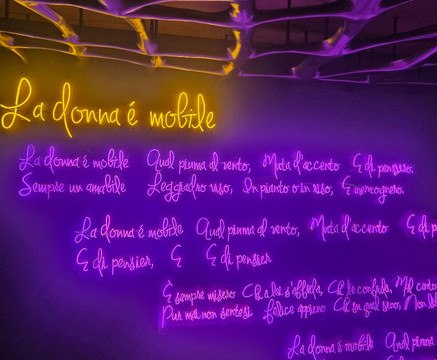 La donna é mobile
La donna é mobile Qual piuma al vento, Muta d'accento E di pensiero.
Sempre un amabile Leggiadro viso, In pianto o in riso, È menzognero.
La donna é mobile Qual piuma al vento, Muta d'accento E di p
E di pensier, E E di pensier
È sempre misero Chi a lei s'affida, Chi le confida, Mal cauto
Pur mai non sentesi Felice appieno Chi su quel seno, Non
La donna é mobile Qual piuma